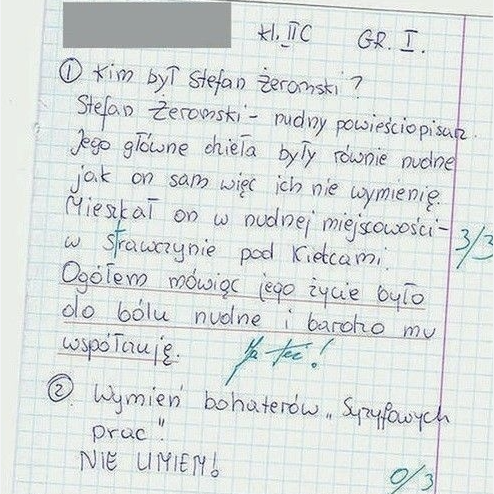 kl. II C GR. I.
① Kim był Stefan Żeromski?
Stefan Żeromski - nudny powieściopisarz.
Jego główne dzieła były równie nudne
jak on sam więc ich nie wymienię.
Mieszkał on w nudnej miejscowości -
w Strawczynie pod Kielcami. 3/3
Ogółem mówiąc jego życie było
do bólu nudne i bardzo mu
współczuję. Ja też!
② Wymień bohaterów „Syzyfowych
prac".
NIE UMIEM!
0/3